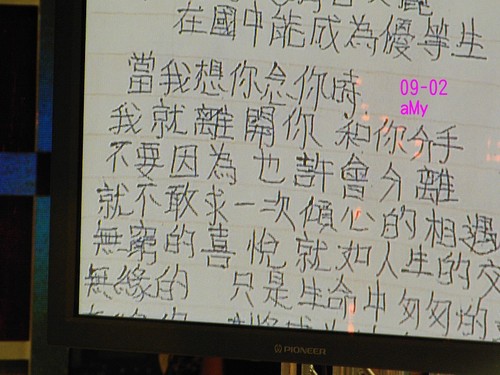 在國中能成為優等生
當我想你念你時
09-02
aMy
我就離開你 和你分手
不要因為 也許會分離
就不敢求一次傾心的相遇
無窮的喜 悅就如人生的交
無緣的 只是生命中匆匆的
PIONEER